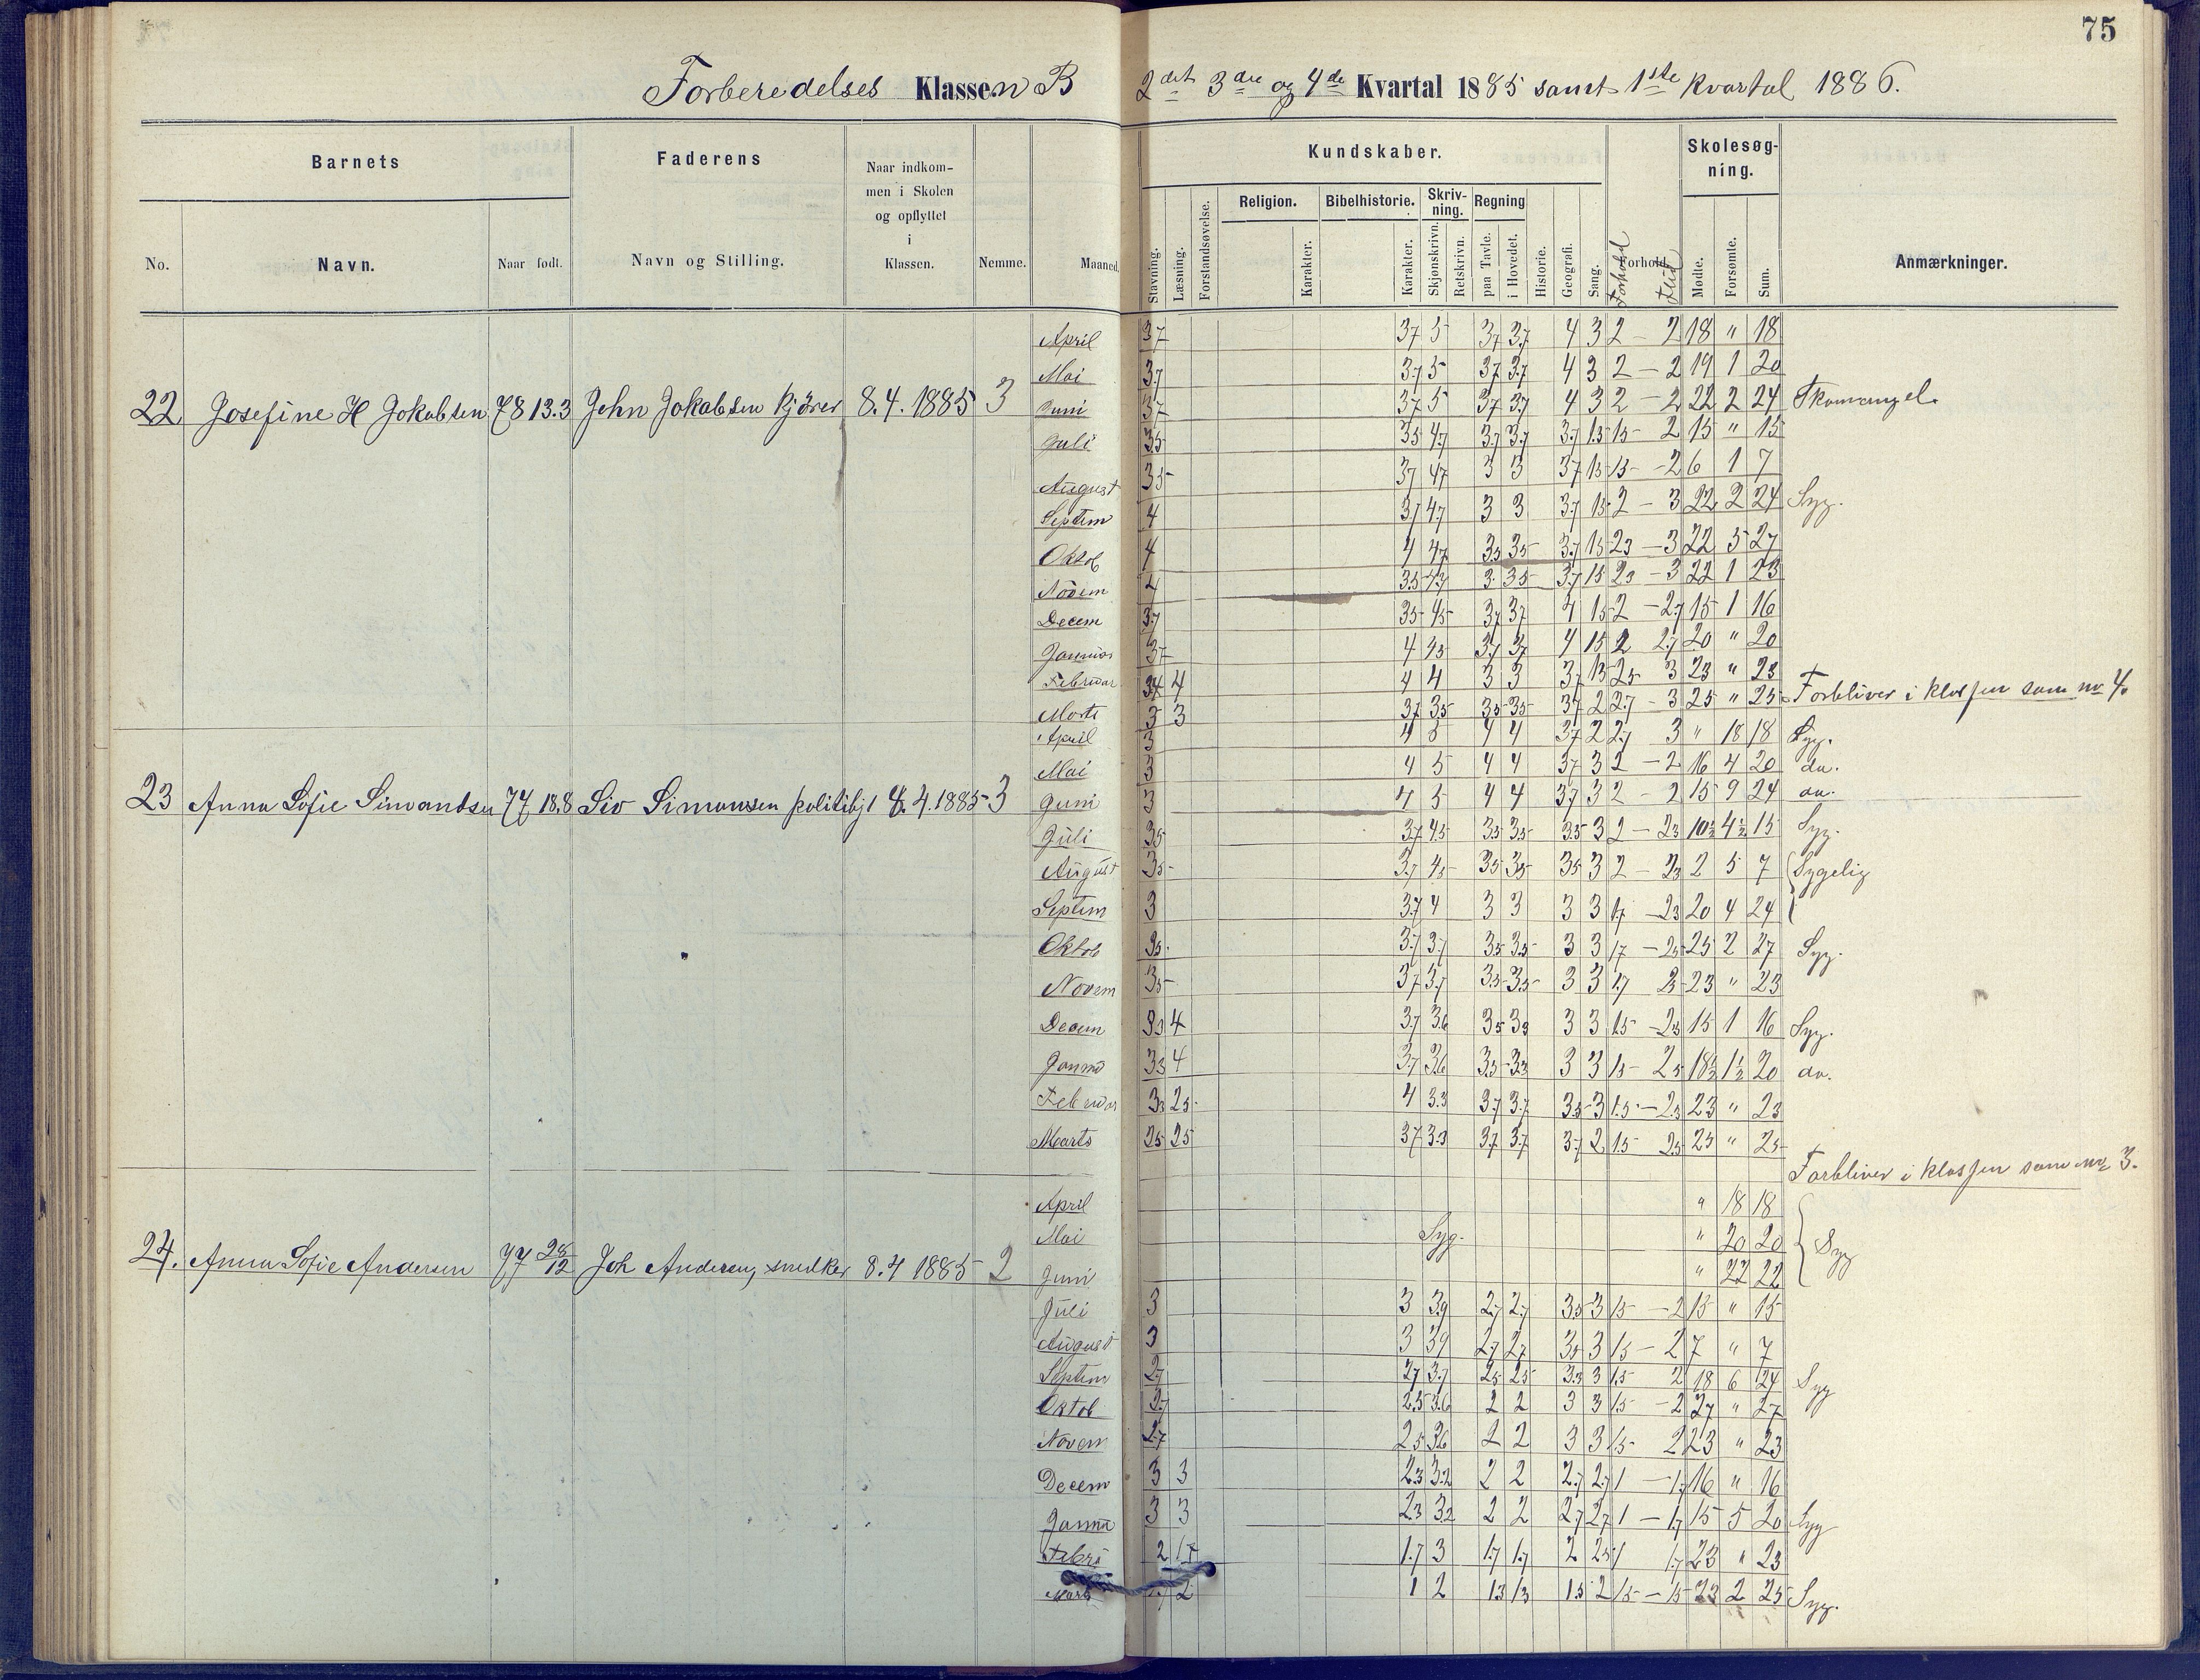 75
Forberedelses Klassen B 2det 3die og 4de Kvartal 1885 samt 1ste Kvartal 1886.
Barnets Faderens Naar indkom- Kundskaber. Skolesøg-
men i Skolen ning.
og opflyttet Religion. Bibelhistorie. Skriv- Regning
i ning.
No. Navn. Naar født. Navn og Stilling. Klassen. Nemme. Maaned. Stavning. Læsning. Forstandsøvelse. Karakter. Karakter. Skjønskrivn. Retskrivn. paa Tavle. i Hovedet. Historie. Geografi. Sang. Forhold. Forhold Flid Mødte. Forsømte. Sum. Anmærkninger.
April 37 37 5 37 37 4 3 2 - 2 18 " 18
Mai 37 37 5 37 37 4 3 2 - 2 19 1 20
22 Josefine H Jokobsen 78 13.3 John Jokobsen kjörer 8.4.1885 3 Juni 37 37 5 37 37 4 3 2 - 2 22 2 24 Skomangel.
Juli 35 35 47 37 37 37 15 15 2 15 " 15
August 35 37 47 3 3 37 15 15 - 2 6 1 7
Septem 4 37 47 3 3 37 15 2 - 3 22 2 24 Syg.
Oktob 4 4 47 35 35 37 15 23 - 3 22 5 27
Novem 4 35 47 3 35 37 15 23 - 3 22 1 23
Decem 37 35 45 37 37 4 15 2 - 27 15 1 16
Januar 37 4 45 37 37 4 15 2 27 20 " 20
Februar 34 4 4 4 3 3 37 15 25 3 23 " 23
Marts 3 3 37 35 35 35 37 2 27 - 3 25 " 25 Forbliver i klassen som no 4.
April 3 4 5 4 4 37 2 27 3 " 18 18 Syg.
Mai 3 4 5 4 4 37 3 2 - 2 16 4 20 do.
23 Anna Sofie Simondsen 77 18.8 Siv Simonsen politibjt 8.4.1885 3 Juni 3 4 5 4 4 37 3 2 - 2 15 9 24 do.
Juli 35 37 45 35 35 35 3 2 - 23 10½ 4½ 15 Syg.
August 35 37 45 35 35 35 3 2 - 23 2 5 7 Sygelig
Septem 3 37 4 3 3 3 3 17 - 23 20 4 24
Oktob 35 37 37 35 35 3 3 17 - 25 25 2 27 Syg.
Novem 35 37 37 35 35 3 3 17 23 23 " 23
Decem 33 4 37 36 35 33 3 3 15 - 23 15 1 16 Syg.
Janua 33 4 37 36 33 33 3 3 15 - 25 18½ 1½ 20 do.
Februar 33 25 4 33 37 37 35 3 15 - 25 23 " 23
Marts 25 25 37 33 37 37 37 2 15 25 25 " 25
Forbliver i klassen som no 3.
April " 18 18
Mai Syg. " 20 20 Syg
24. Anna Sofie Andersen 77 28/12 Joh Andersen, snedker 8.4 1885 2 Juni " 22 22
Juli 3 3 39 27 27 35 3 15 - 2 15 " 15
August 3 3 39 27 27 35 3 15 - 2 7 " 7
Septem 27 27 37 25 25 33 3 15 2 18 6 24 Syg
Oktob 27 25 36 2 2 3 3 15 - 2 27 " 27
Novem 27 25 36 2 2 3 3 15 2 23 " 23
Decem 3 3 23 32 2 2 27 27 1 - 17 16 " 16
Janua 3 3 23 32 2 2 27 27 1 - 17 15 5 20 Syg
Febru 2 17 17 3 17 17 2 25 1 17 23 " 23
Marts 2 1 2 13 13 15 2 15 - 15 23 2 25 Syg.